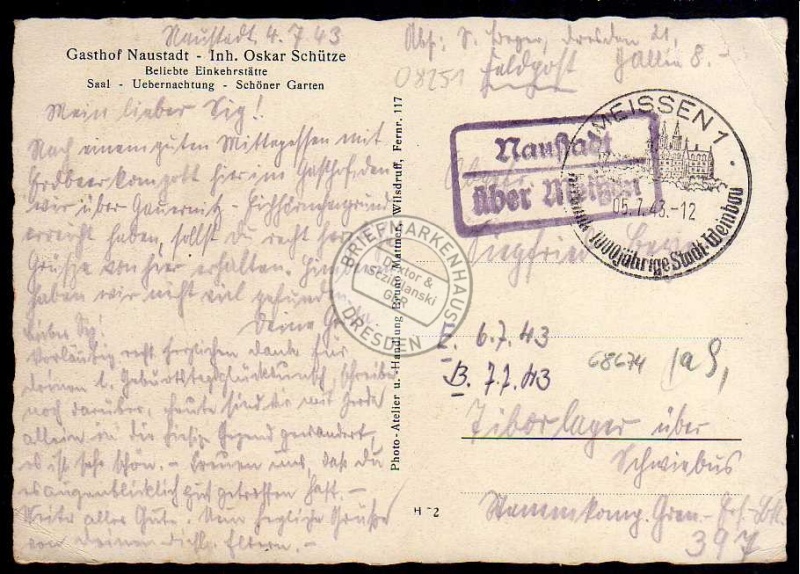 Naustadt, 4.7.43
Gasthof Naustadt - Inh. Oskar Schütze
Beliebte Einkehrstätte
Saal - Uebernachtung - Schöner Garten
Mein lieber Sig!
Nach einem guten Mittagessen mit
Erdbeerkompott hier im Gasthof, den
wir über Gauernitz - Eichhörnchengrund
erreicht haben, sollst du recht herzl.
Grüße von hier erhalten.
haben wir nicht viel gefunden.
Deine
Lieber Sig!
Vorläufig recht herzlichen Dank für
deinen l. Geburtstagsglückwunsch, schreibe
noch darüber, heute sind wir mit Gerda
allein in die hiesige Gegend gewandert,
es ist sehr schön. - Freuen uns, daß du
es augenblicklich gut getroffen hast. -
Weiter alles Gute. Nun herzliche Grüße
von deinen Eltern. -
Photo-Atelier u. -Handlung Bruno Mattner, Wilsdruff, Fernr. 117
H 2
Abs: S. Beger, Dresden 21,
08251
Feldpost
Naustadt
über Meißen
MEISSEN 1
05.7.43.-12
1000jährige Stadt-Weinbau
Siegfried Beger
BRIEFMARKENHAUS
Doktor &
Sczimanski
GbR
DRESDEN
E. 6.7.43
B. 7.7.43
68674
Tiborlager über
Schwiebus
Stammkomp. Gren.-
397